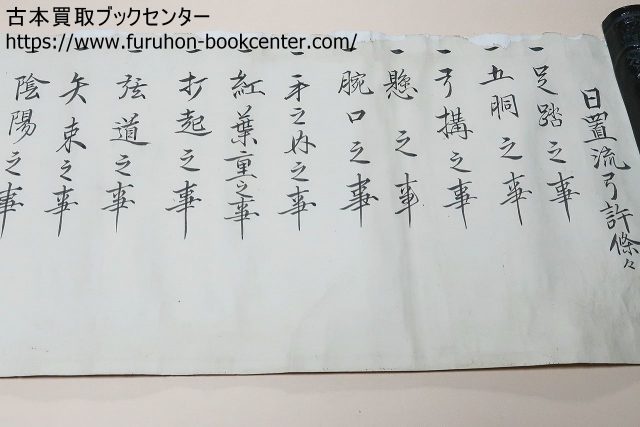 古本買取ブックセンター
https://www.furuhon-bookcenter.com/
日置流弓許條々
一 足踏之事
一 五胴之事
一 弓搆之事
一 懸之事
一 腕口之事
一 手之内之事
一 紅葉重之事
一 打起之事
一 弦道之事
一 矢束之事
一 陰陽之事